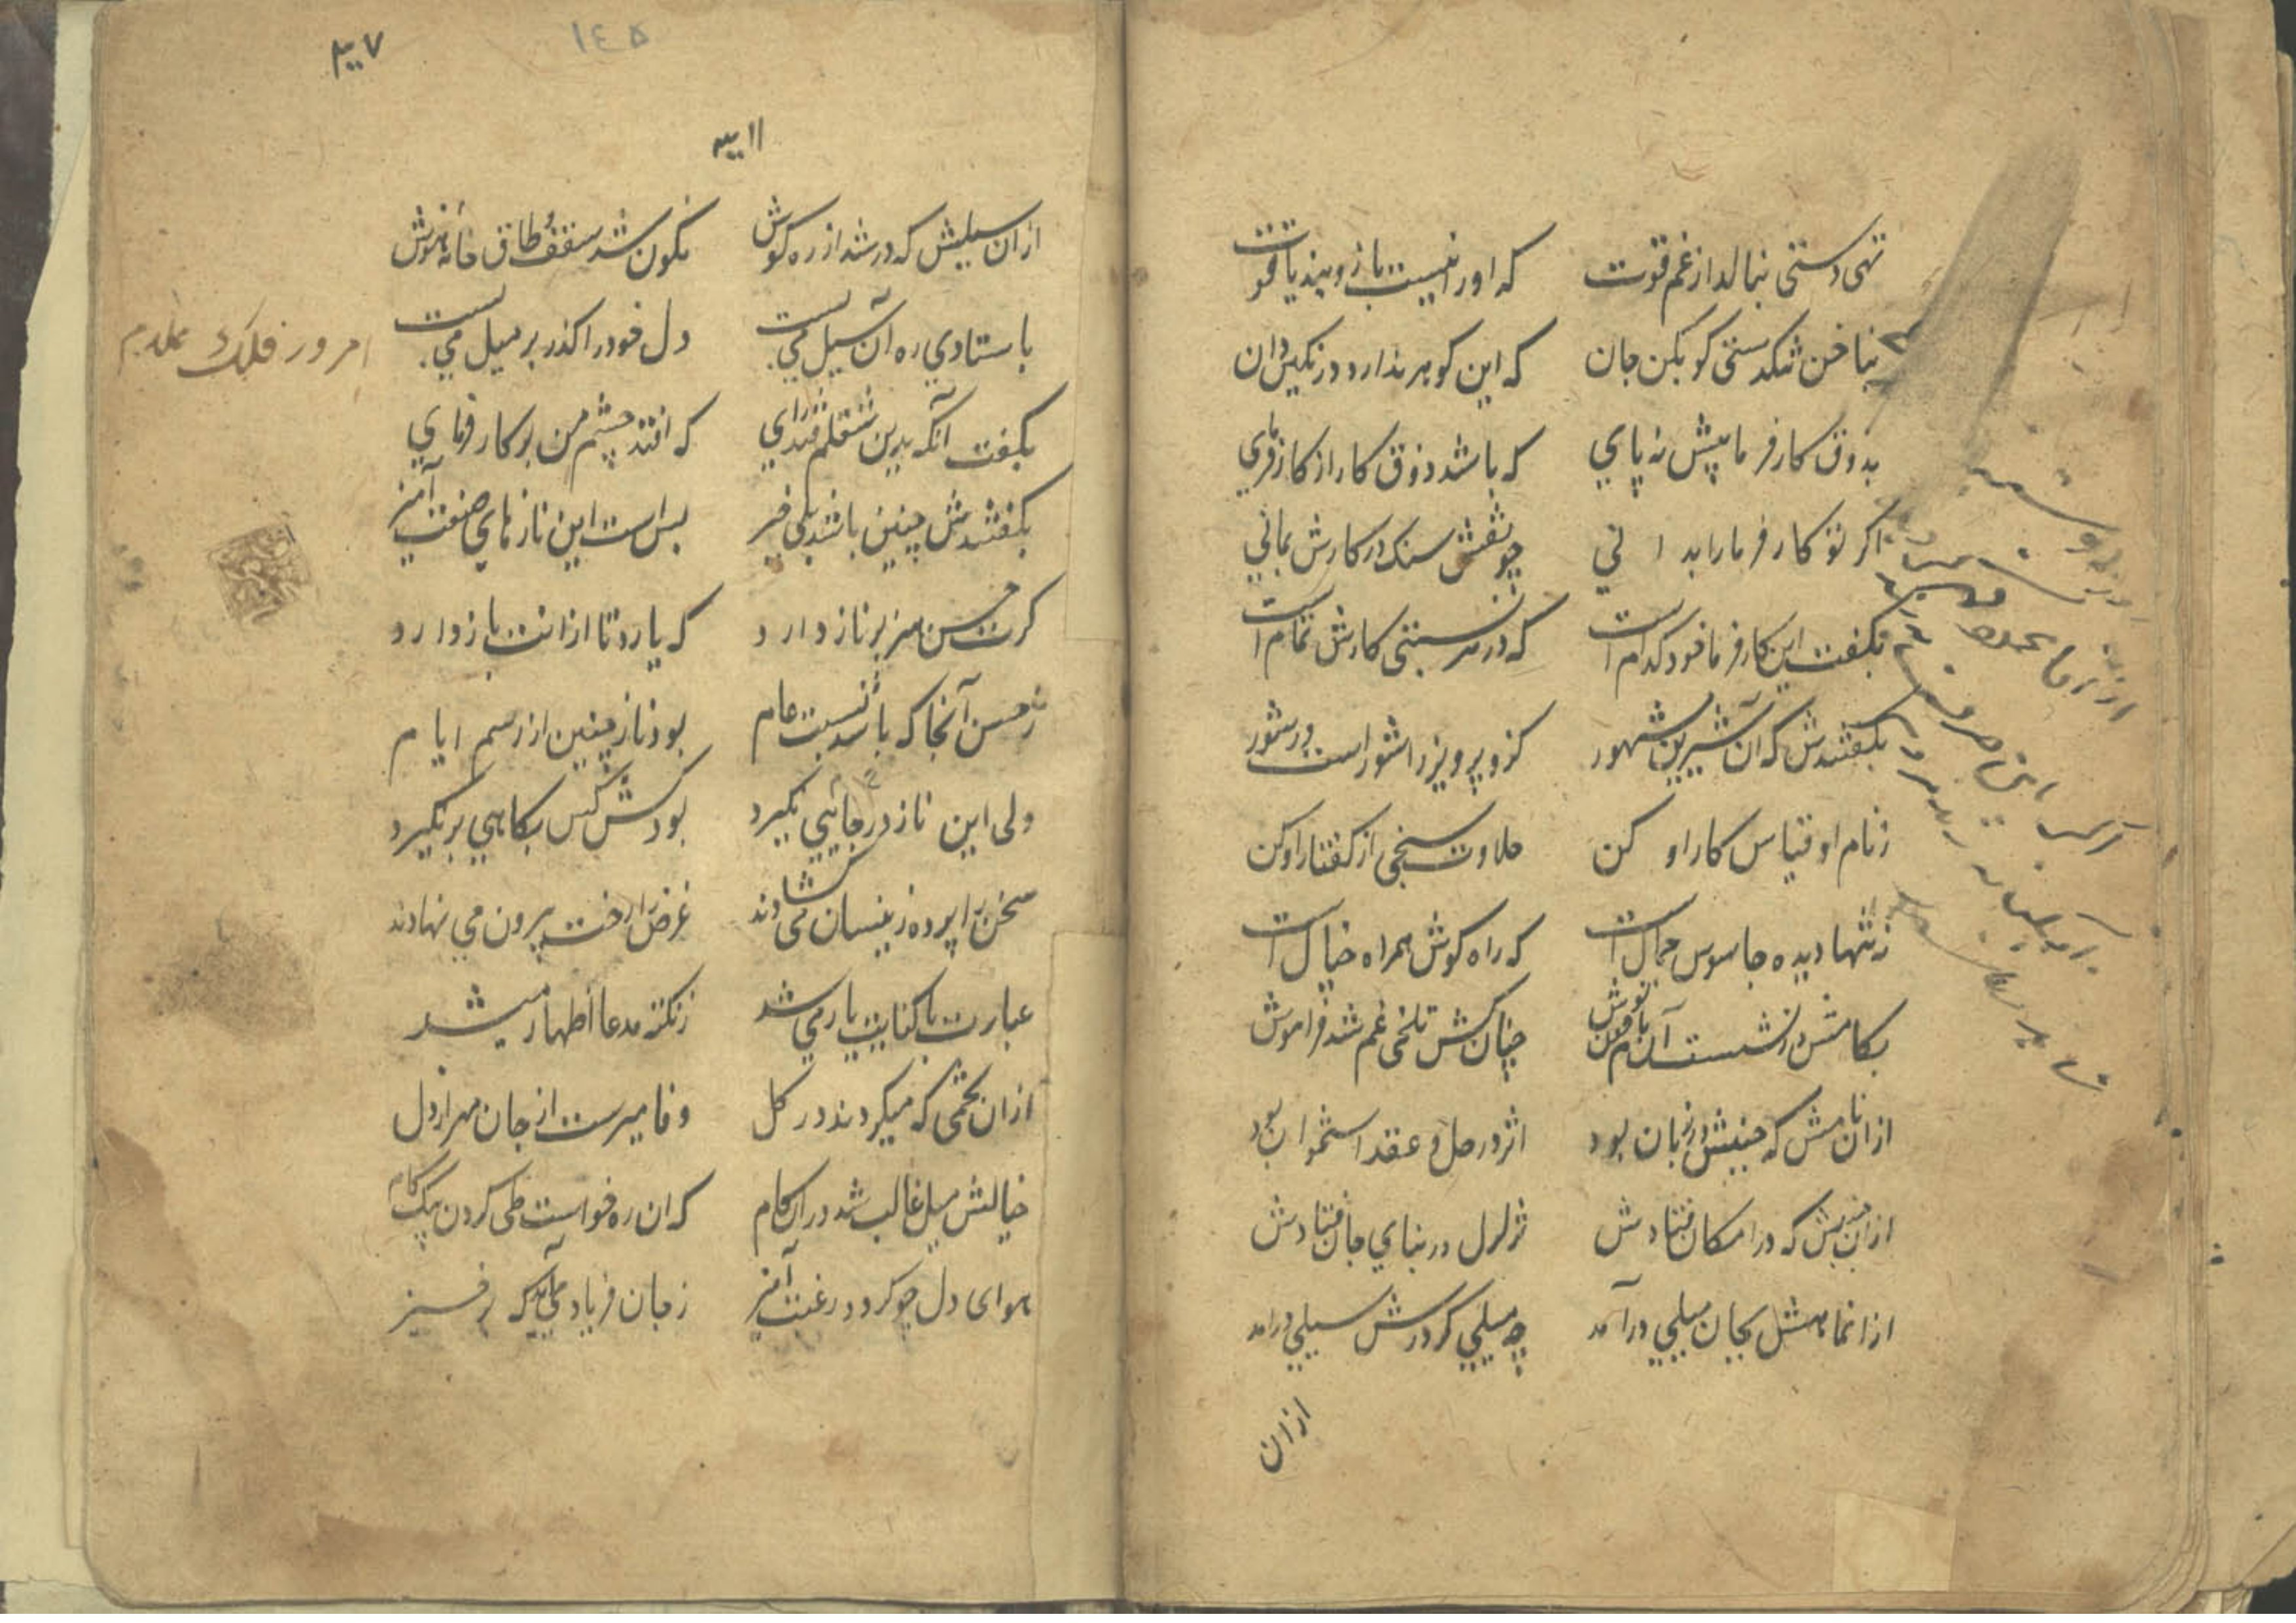 تهی دستی بنالد از غم قوت که او را نیست بازوبند یاقوت
بناخن تنکدستی کو بکن جان که این کوهر ندارد در نکین دان
بذوق کارفرما پیش نه پای که باشد ذوق کار از کارفرمای
اکر تو کارفرما را بدانی چو نقش سنک در کارش بمانی
بکفت این کارفرما خود کدام است که در هر نسبتی کارش تمام است
بکفتندش که آن شیرین مشهور کزو پرویز را شور است در شور
ز نام او قیاس کار او کن حلاوت سنجی از کفتار او کن
نه تنها دیده جاسوس جمال است که راه کوش همراه خیال است
بکامش در نشست آن نام چون نوش چنان کش تلخی غم شد فراموش
ازان نامش که جنبش در زبان بود اثر در حل و عقد استخوان بود
ازان جنبش که در امکان فتادش تزلزل در بنای جان فتادش
بجان میلی درآمد چه میلی کز درش سیلی درامد
ازان
۱۴۵
ازان سیلش که در شد از ره کوش نکون شد سقف طاق خانه هوش
باستادی ره آن سیل می بست دل خود را کذر بر میل می بست
بکفت آنکه بدین شغلم فتد رای که افتد چشم من بر کارفرمای
بکفتندش چنین باشد بلی خیز بس است این نازهای صنعت آمیز
کرت حسن هنر بر ناز دارد که یارد تا ازانت باز دارد
ز حسن آنجا که باشد نسبت عام بود ناز چنین از رسم ایام
ولی این ناز در جایی نکیرد بود کش کس بکاهی بر نکیرد
سخن را پرده زینسان می کشادند غرض را رخت بیرون می نهادند
عبارت با کنایت یار می شد ز نکته مدعا اظهار میشد
ازان تخمی که میکردند در کل وفا میرست از جان مهر از دل
خیالش میل غالب شد دران کام که ان ره خواست طی کردن بیک کام
هوای دل چو کردد رغبت آمیز
امروز فلک